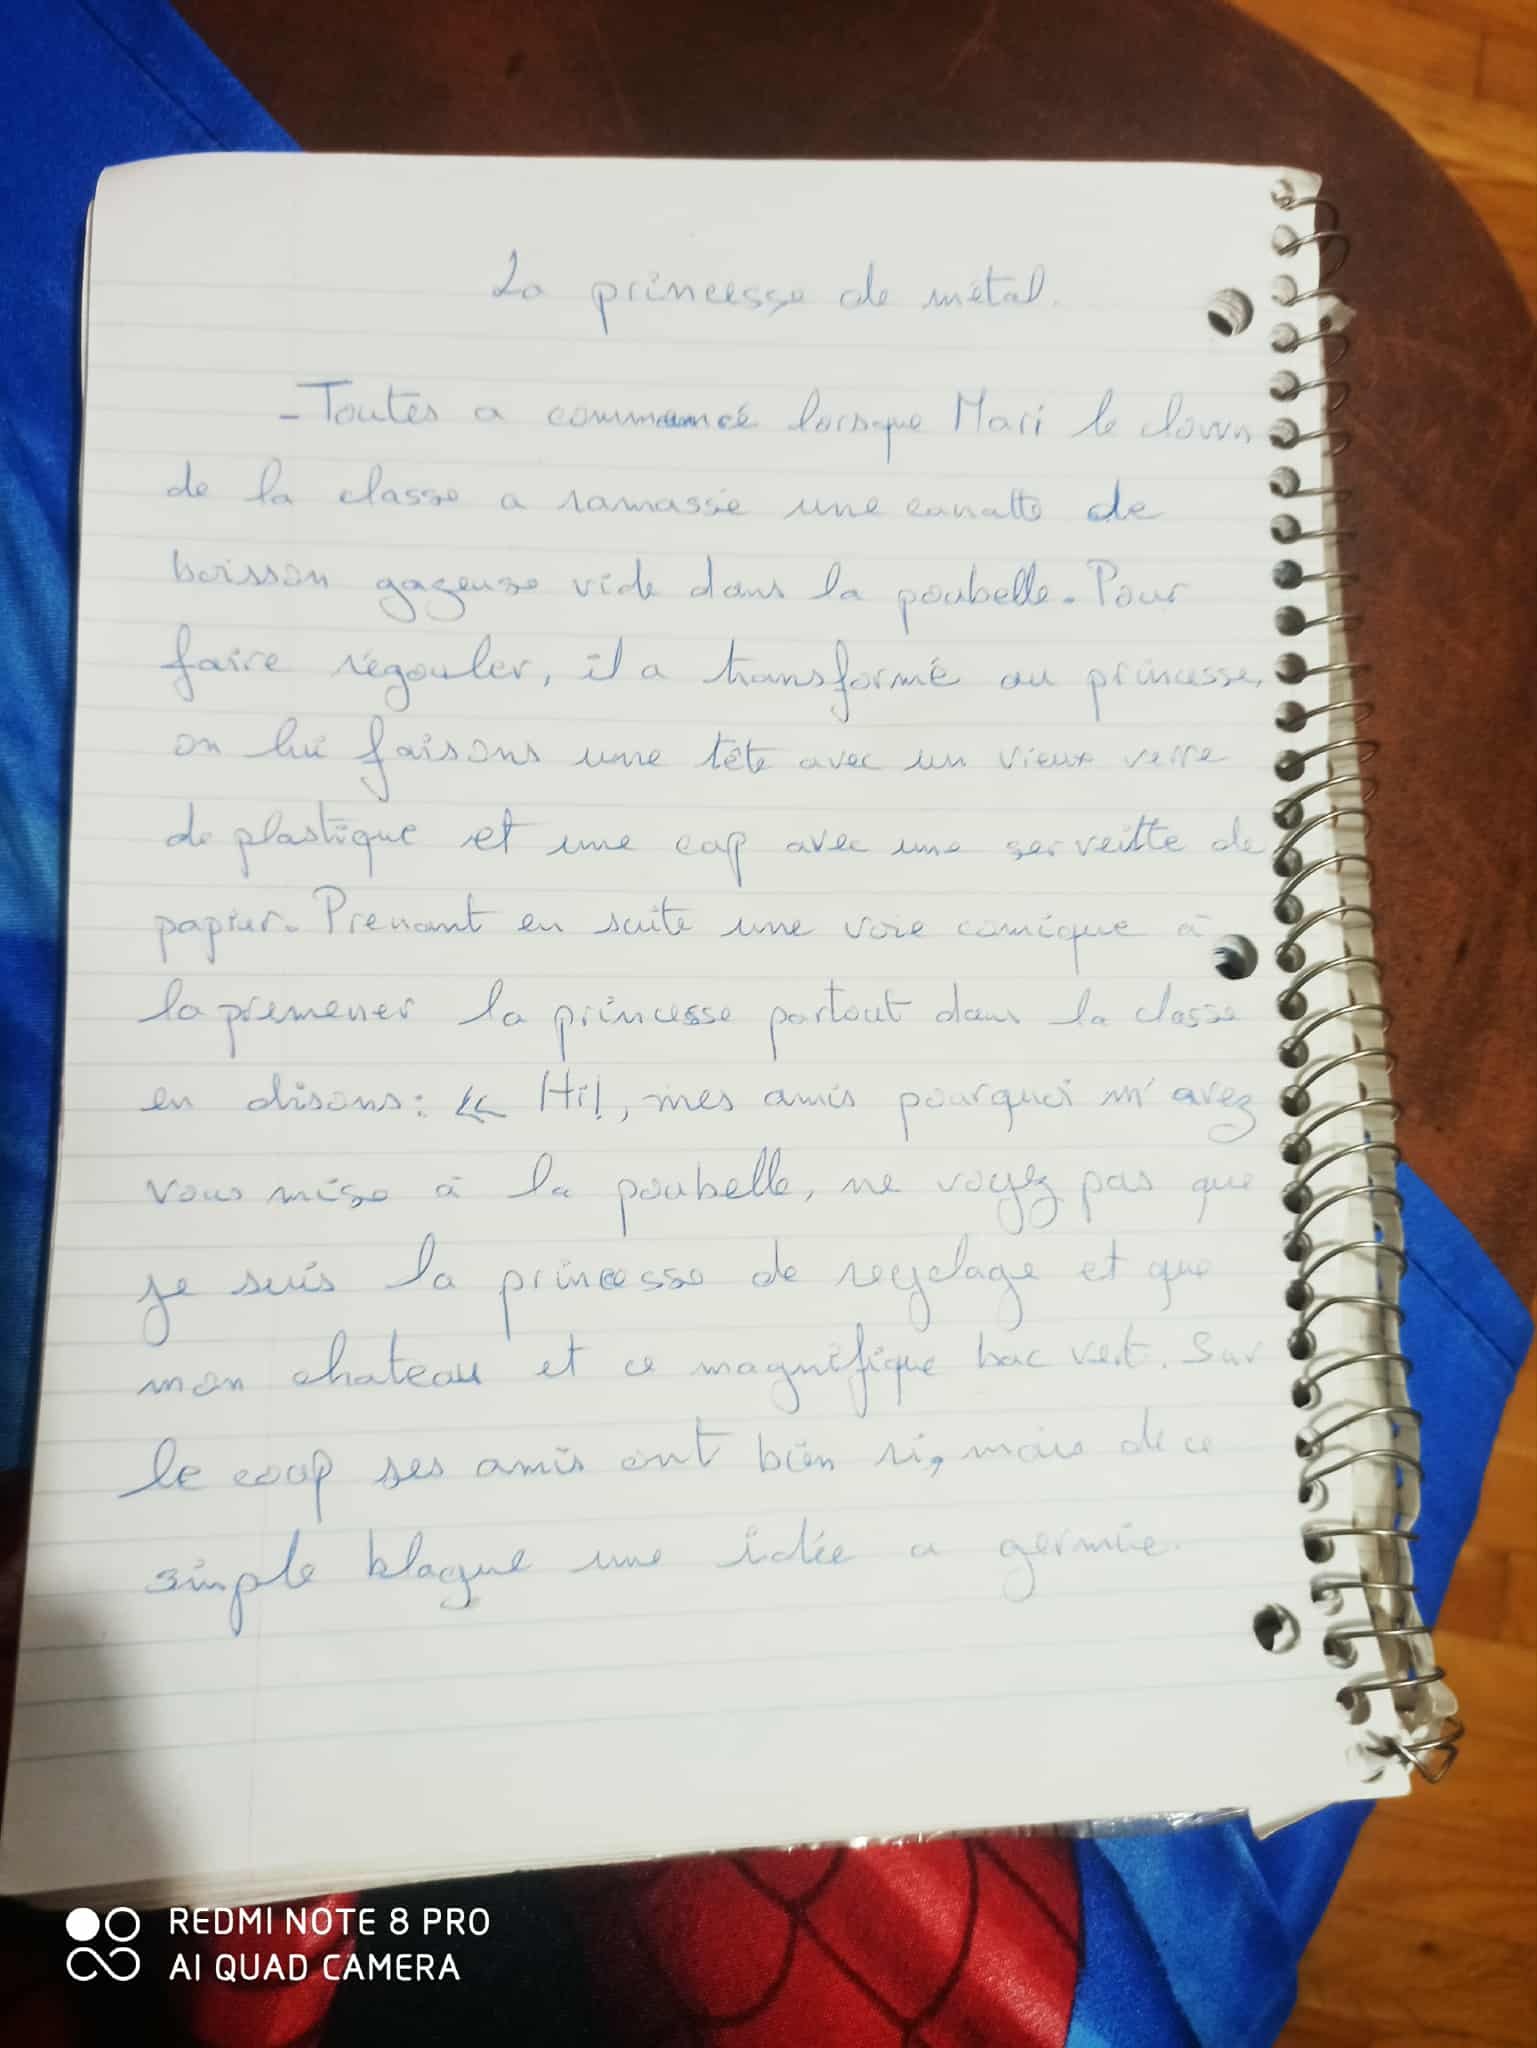 La princesse de métal.
- Toutes a commencé lorsque Mari le clown
de la classe a ramassé une canatte de
boisson gazeuse vide dans la poubelle. Pour
faire régouler, il a transformé au princesse,
on lui faisons une tête avec un vieux verre
de plastique et une cap avec une serveitte de
papier. Prenant en suite une voie comique à
la premener la princesse partout dans la classe
en disons: << Hi!, mes amis pourquoi m'avez
vous mise à la poubelle, ne voyez pas que
je suis la princesse de recyclage et que
mon chateau et ce magnifique bac vert. Sur
le coup ses amis ont bien ri, mais de ce
simple blague une idée a germée.
REDMI NOTE 8 PRO
AI QUAD CAMERA